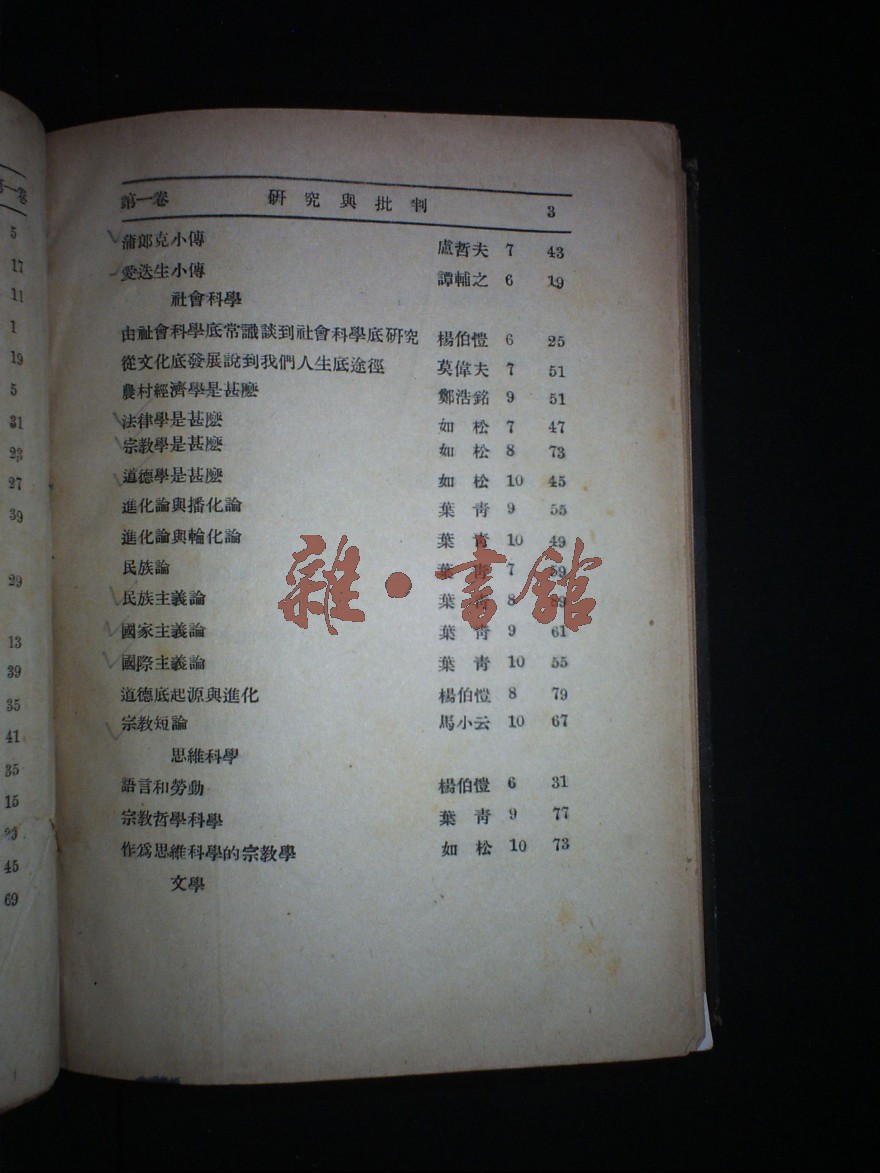 第一卷 研究與批判 3
蒲郎克小傳 盧哲夫 7 43
愛迭生小傳 譚輔之 6 19
社會科學
由社會科學底常識談到社會科學底研究 楊伯愷 6 25
從文化底發展說到我們人生底途徑 莫偉夫 7 51
農村經濟學是甚麽 鄭浩銘 9 51
法律學是甚麽 如松 7 47
宗教學是甚麽 如松 8 73
道德學是甚麽 如松 10 45
進化論與播化論 葉青 9 55
進化論與輪化論 葉青 10 49
民族論 葉青 7 59
民族主義論 葉青 8 89
國家主義論 葉青 9 61
國際主義論 葉青 10 55
道德底起源與進化 楊伯愷 8 79
宗教短論 馬小云 10 67
思維科學
語言和勞動 楊伯愷 6 31
宗教哲學科學 葉青 9 77
作爲思維科學的宗教學 如松 10 73
文學
雜·書館
第一卷
5
17
11
1
19
5
31
23
27
39
29
13
39
35
41
35
15
45
69